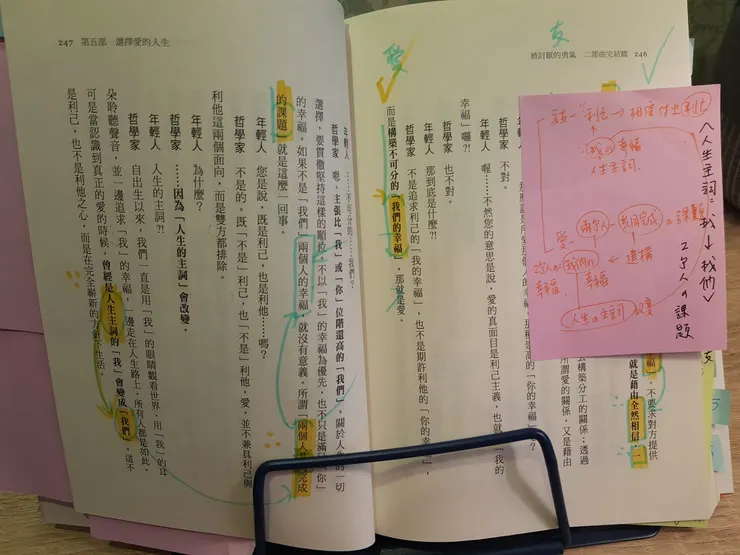 被討厭的勇氣 二部曲完結篇 246
友
愛
幸福」，不要求對方提供
就是藉由全然相信，二
去構築分工的關係；透過
所謂愛的關係，又是藉由
「你的幸福」？
哲學家 不對。
年輕人 喔……不然您的意思是說，愛的真面目是利己主義，也就 「我的
幸福」囉?!
哲學家 也不對。
年輕人 那到底是什麼?!
哲學家 不是追求利己的「我的幸福」，也不是期許利他的「你的幸福」，
而是構築不可分的「我們的幸福」，那就是愛。
<人生主詞=我→我們>
2个人の課題
利他
我の幸福
人生主詞
兩个人 共同完成の課題
愛
建構
2个人の我們の幸福
人生の主詞 改變
友
247 第五部 選擇愛的人生
年輕人 ……不可分的……我們？
哲學家 嗯，主張比「我」或「你」位階還高的「我們」，關於人生的一切
選擇，要貫徹堅持這樣的順位，不以「我」的幸福為優先，也不只是滿足「你」
的幸福，如果不是「我們」兩個人的幸福，就沒有意義。所謂「兩個人共同完成
的課題」就是這麼一回事。
年輕人 您是說，既是利己，也是利他……嗎？
哲學家 不是的。既「不是」利己，也「不是」利他。愛，並不兼具利己與
利他這兩個面向，而是雙方都排除。
年輕人 為什麼？
哲學家 ……因為「人生的主詞」會改變。
年輕人 人生的主詞?!
哲學家 自出生以來，我們一直是用「我」的眼睛觀看世界，用「我」的耳
朵聆聽聲音，並一邊追求「我」的幸福，一邊走在人生路上，所有人都是如此。
可是當認識到真正的愛的時候，曾經是人生主詞的「我」會變成「我們」，這不
是利己，也不是利他之心，而是在完全嶄新的方針下生活。